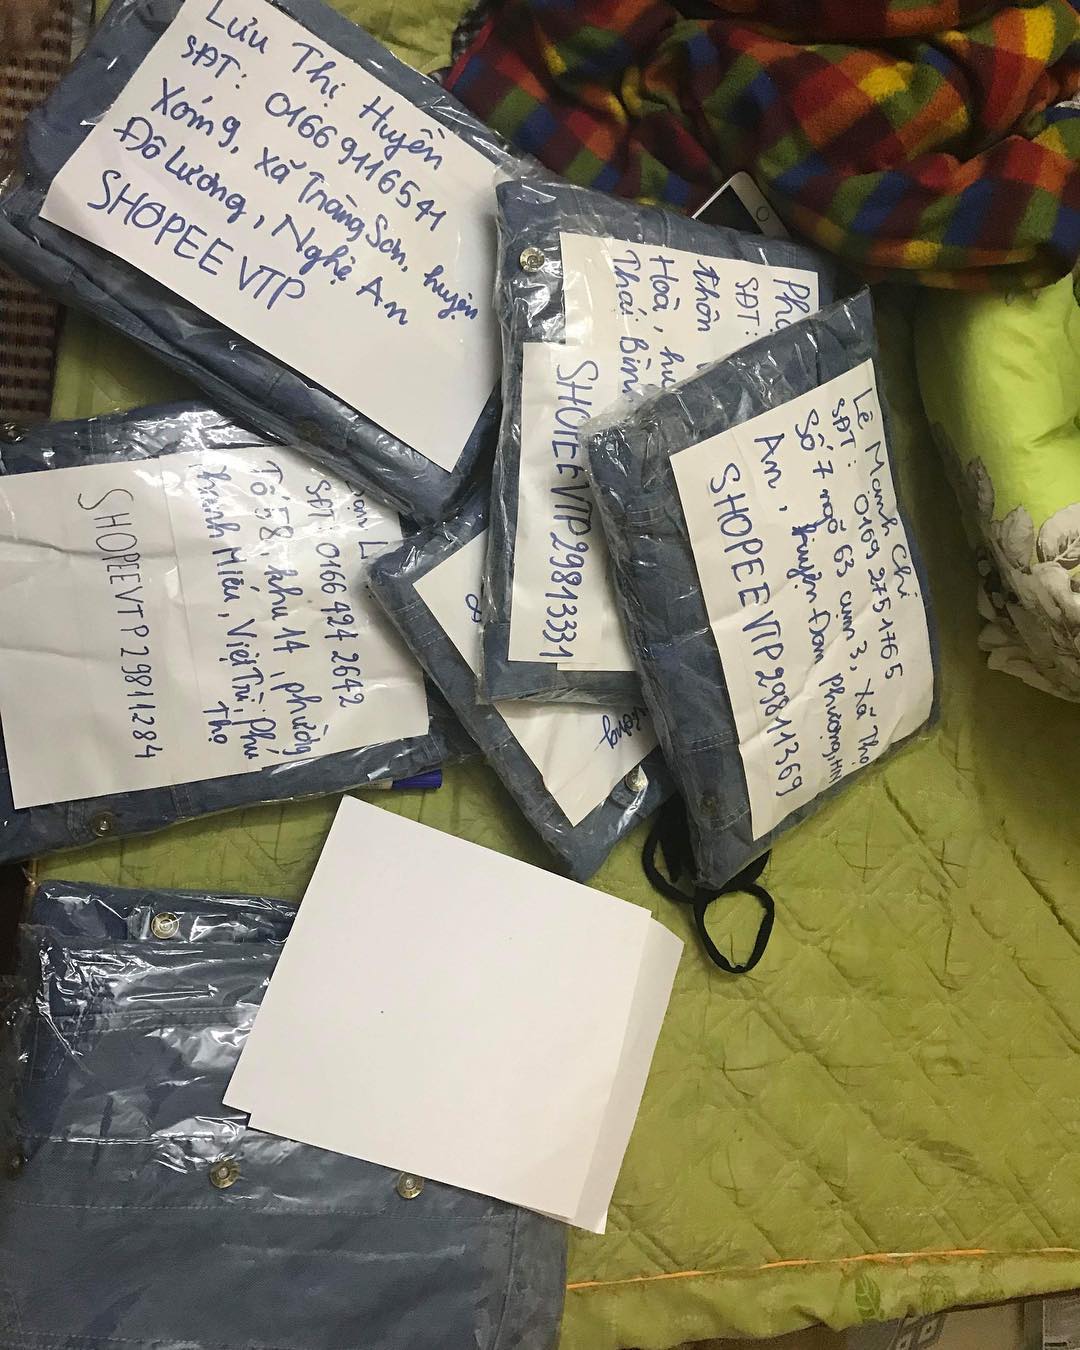 Lưu Thị Huyền
SĐT: 0166 9116541
Xóm 9, xã Tràng Sơn, huyện
Đô Lương, Nghệ An
SHOPEE VTP
SĐT:
thôn
Hoà,
Thái Bình
SHOPEE VTP 29813331
Lê Mạnh Chi
SĐT: 0169 275 1765
Số 7 ngõ 63 cụm 3, xã Thọ
An, huyện Đan phượng, HN
SHOPEE VTP 29811369
SĐT 0166 424 2642
Tổ 58, khu 14, phường
Thanh Miếu, Việt Trì, Phú
Thọ
SHOPEE VTP 29811284